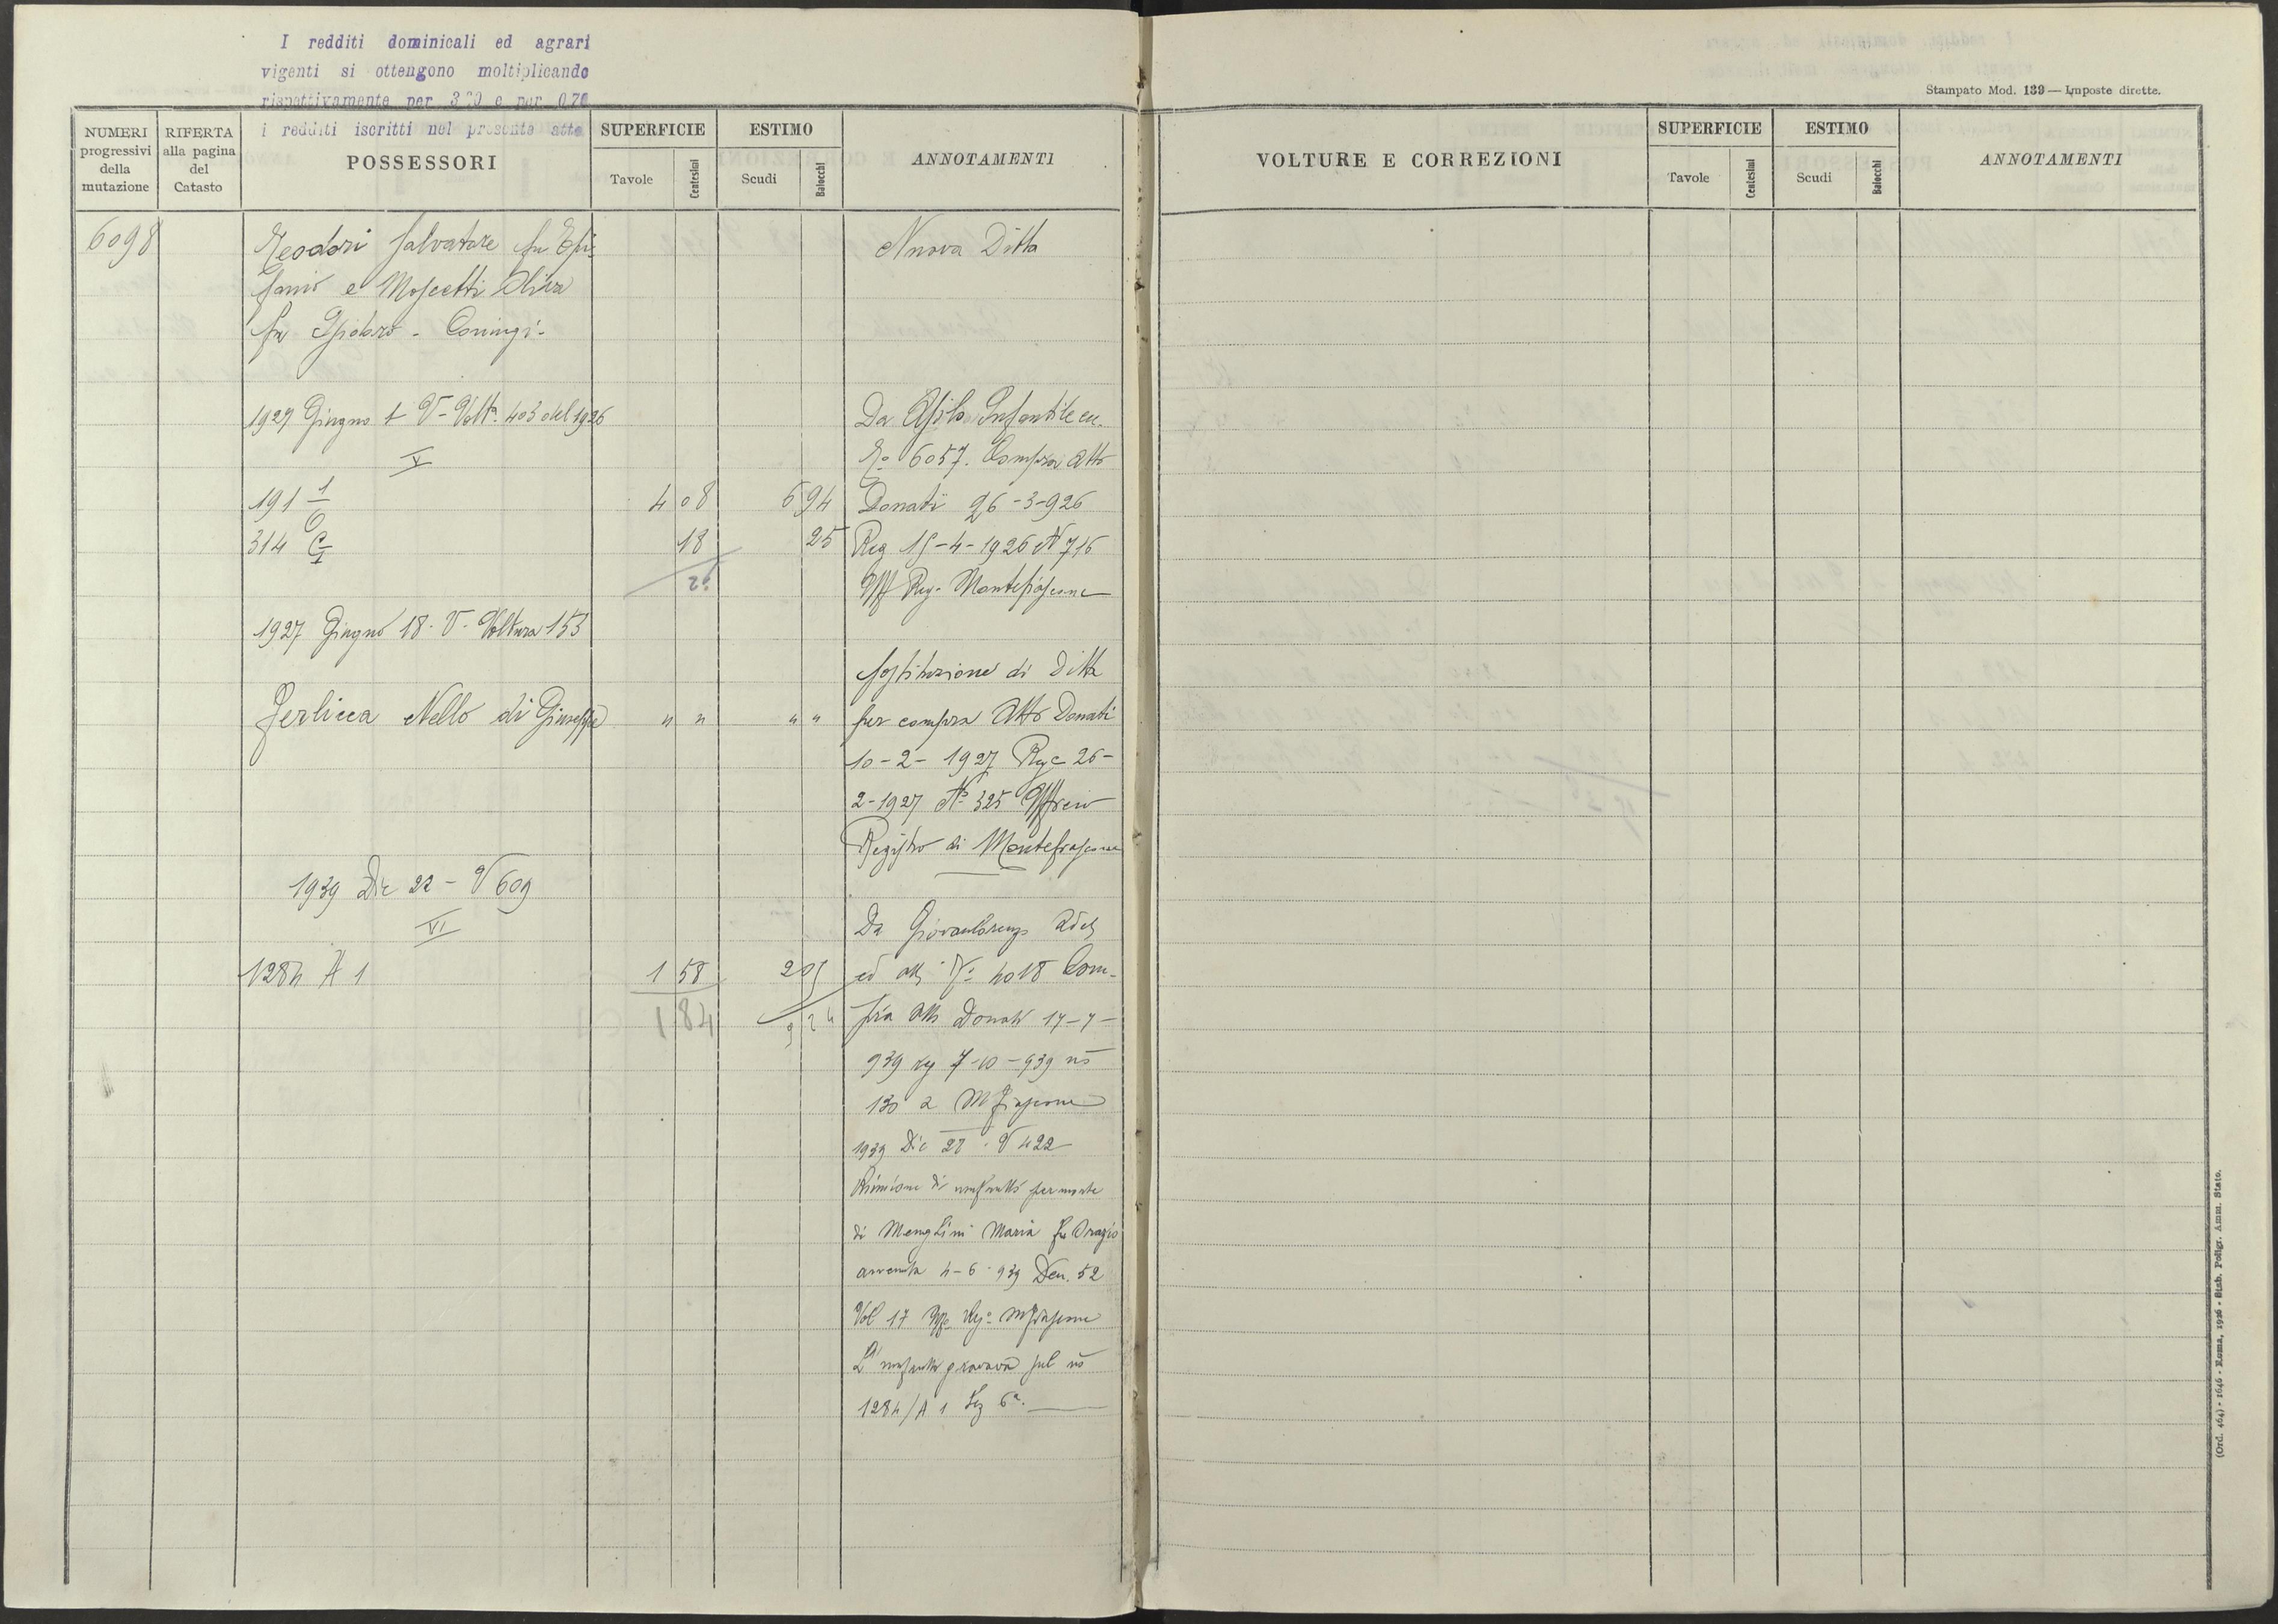 I redditi dominicali ed agrari
vigenti si ottengono moltiplicando
rispettivamente per 3 20 e per 0,70
i redditi iscritti nel presente atto
Stampato Mod. 139 — Imposte dirette.
NUMERI progressivi della mutazione
RIFERTA alla pagina del Catasto
POSSESSORI
SUPERFICIE
Tavole Centesimi
ESTIMO
Scudi Baiocchi
ANNOTAMENTI
VOLTURE E CORREZIONI
SUPERFICIE
Tavole Centesimi
ESTIMO
Scudi Baiocchi
ANNOTAMENTI
6098 Teodori Salvatore fu Epi= Nuova Ditta
fanio e Moscetti Oliva
fu Isidoro - Coniugi -
1927 Giugno 1 V - Volta 403 del 1926 Da Asilo Infantile
V No 6057. Compra atto
191 1 4 08 6 94 Donati 26-3-926
314 C/1 18 25 Reg 15-4-1926 N 716
26 Uff Reg. Montefiascone
1927 Giugno 18 - V - Voltura 153
Sostituzione di Ditta
Ferlicca Nello di Giuseppe " " " " per compra Atto Donati
10-2-1927 Reg 26-
2-1927 No 325 Ufficio
Registro di Montefiascone
1939 Dic 22 - V 609
VI Da Giovanlorenzo
1284 A 1 1 58 2 05 ed No 4018 Com-
1 84 9 24 pra Atto Donati 17-7-
939 reg 7-10-939 no
130 a MFiascone
1939 Dic 28 - V 422
Riunione di usufrutto per morte
di Menghini Maria fu Orazio
avvenuta 4-6-939 Den. 52
Vol 17 Uff Reg MFiascone
L'usufrutto gravava sul no
1284/A 1 Sez 6a.
(Ord. 464) - 1646 - Roma, 1926 - Stab. Poligr. Amm. Stato.